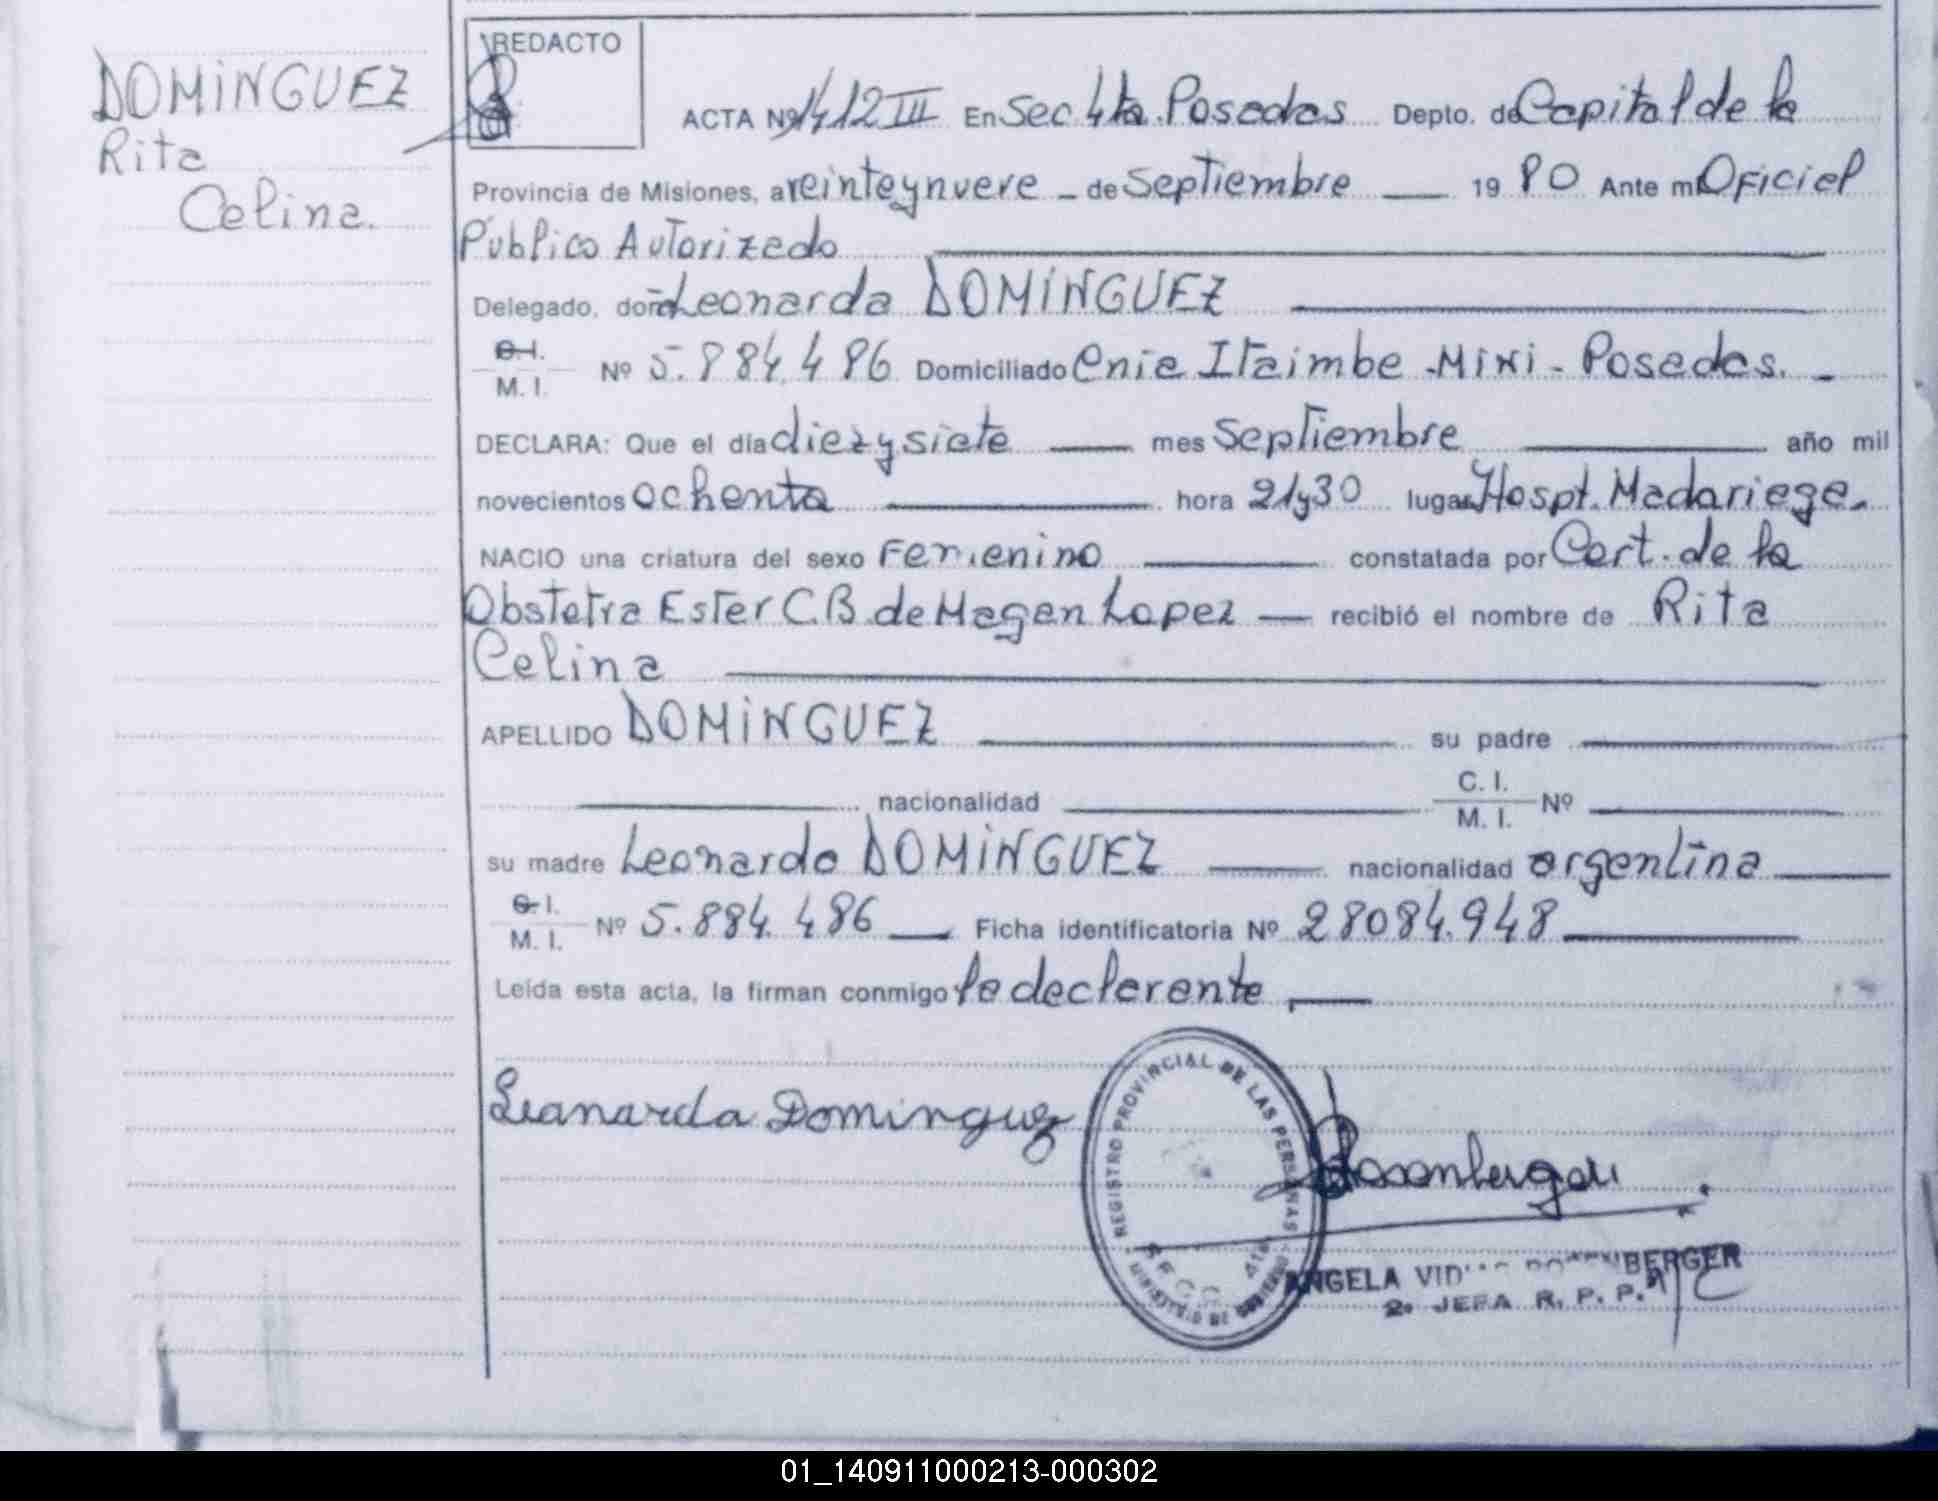 DOMINGUEZ
Rita
Celina.
REDACTO
ACTA Nº 1412 III En Sec 4ta. Posadas Depto. de Capital de la
Provincia de Misiones, a veinteynueve - de Septiembre — 19 80 Ante mi Oficial
Publico Autorizado
Delegado, doña Leonarda DOMINGUEZ
C.I.
M. I. Nº 5.884.486 Domiciliado Cnia Itaimbe - Mini - Posadas. -
DECLARA: Que el día diezysiete — mes Septiembre — año mil
novecientos ochenta — hora 21y30 lugar Hospt. Madariaga.
NACIO una criatura del sexo Femenino — constatada por Cert. de la
Obstetra Ester C.B. de Magan Lopez — recibió el nombre de Rita
Celina
APELLIDO DOMINGUEZ — su padre —
— nacionalidad — C. I.
M. I. Nº —
su madre Leonarda DOMINGUEZ — nacionalidad argentina —
C.I.
M. I. Nº 5.884.486 — Ficha identificatoria Nº 28084.948 —
Leída esta acta, la firman conmigo la declarante, —
Leanarda Dominguez
REGISTRO PROVINCIAL DE LAS PERSONAS
SECC. 4ta.
ANGELA ROSENBERGER
2º JEFA R. P. P.
01_140911000213-000302